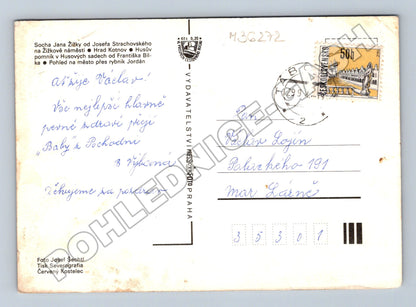 Socha Jana Žižky od Josefa Strachovského
na Žižkově náměstí ● Hrad Kotnov ● Husův
pomník v Husových sadech od Františka Bíl-
ka ● Pohled na město přes rybník Jordán
Ať žije Václav!
Vše nejlepší hlavně
pevné zdraví přejí
"Baby z Pochodni
Děkujeme za
Foto Josef
Tisk Severografia
Červený Kostelec
VYDAVATELSTVÍ
PRAHA
M36272
50h
TÁBOR
2
Pan
Václav Lojín
Palackého 191
Mar Lázně
35301
POHLEDNICE-